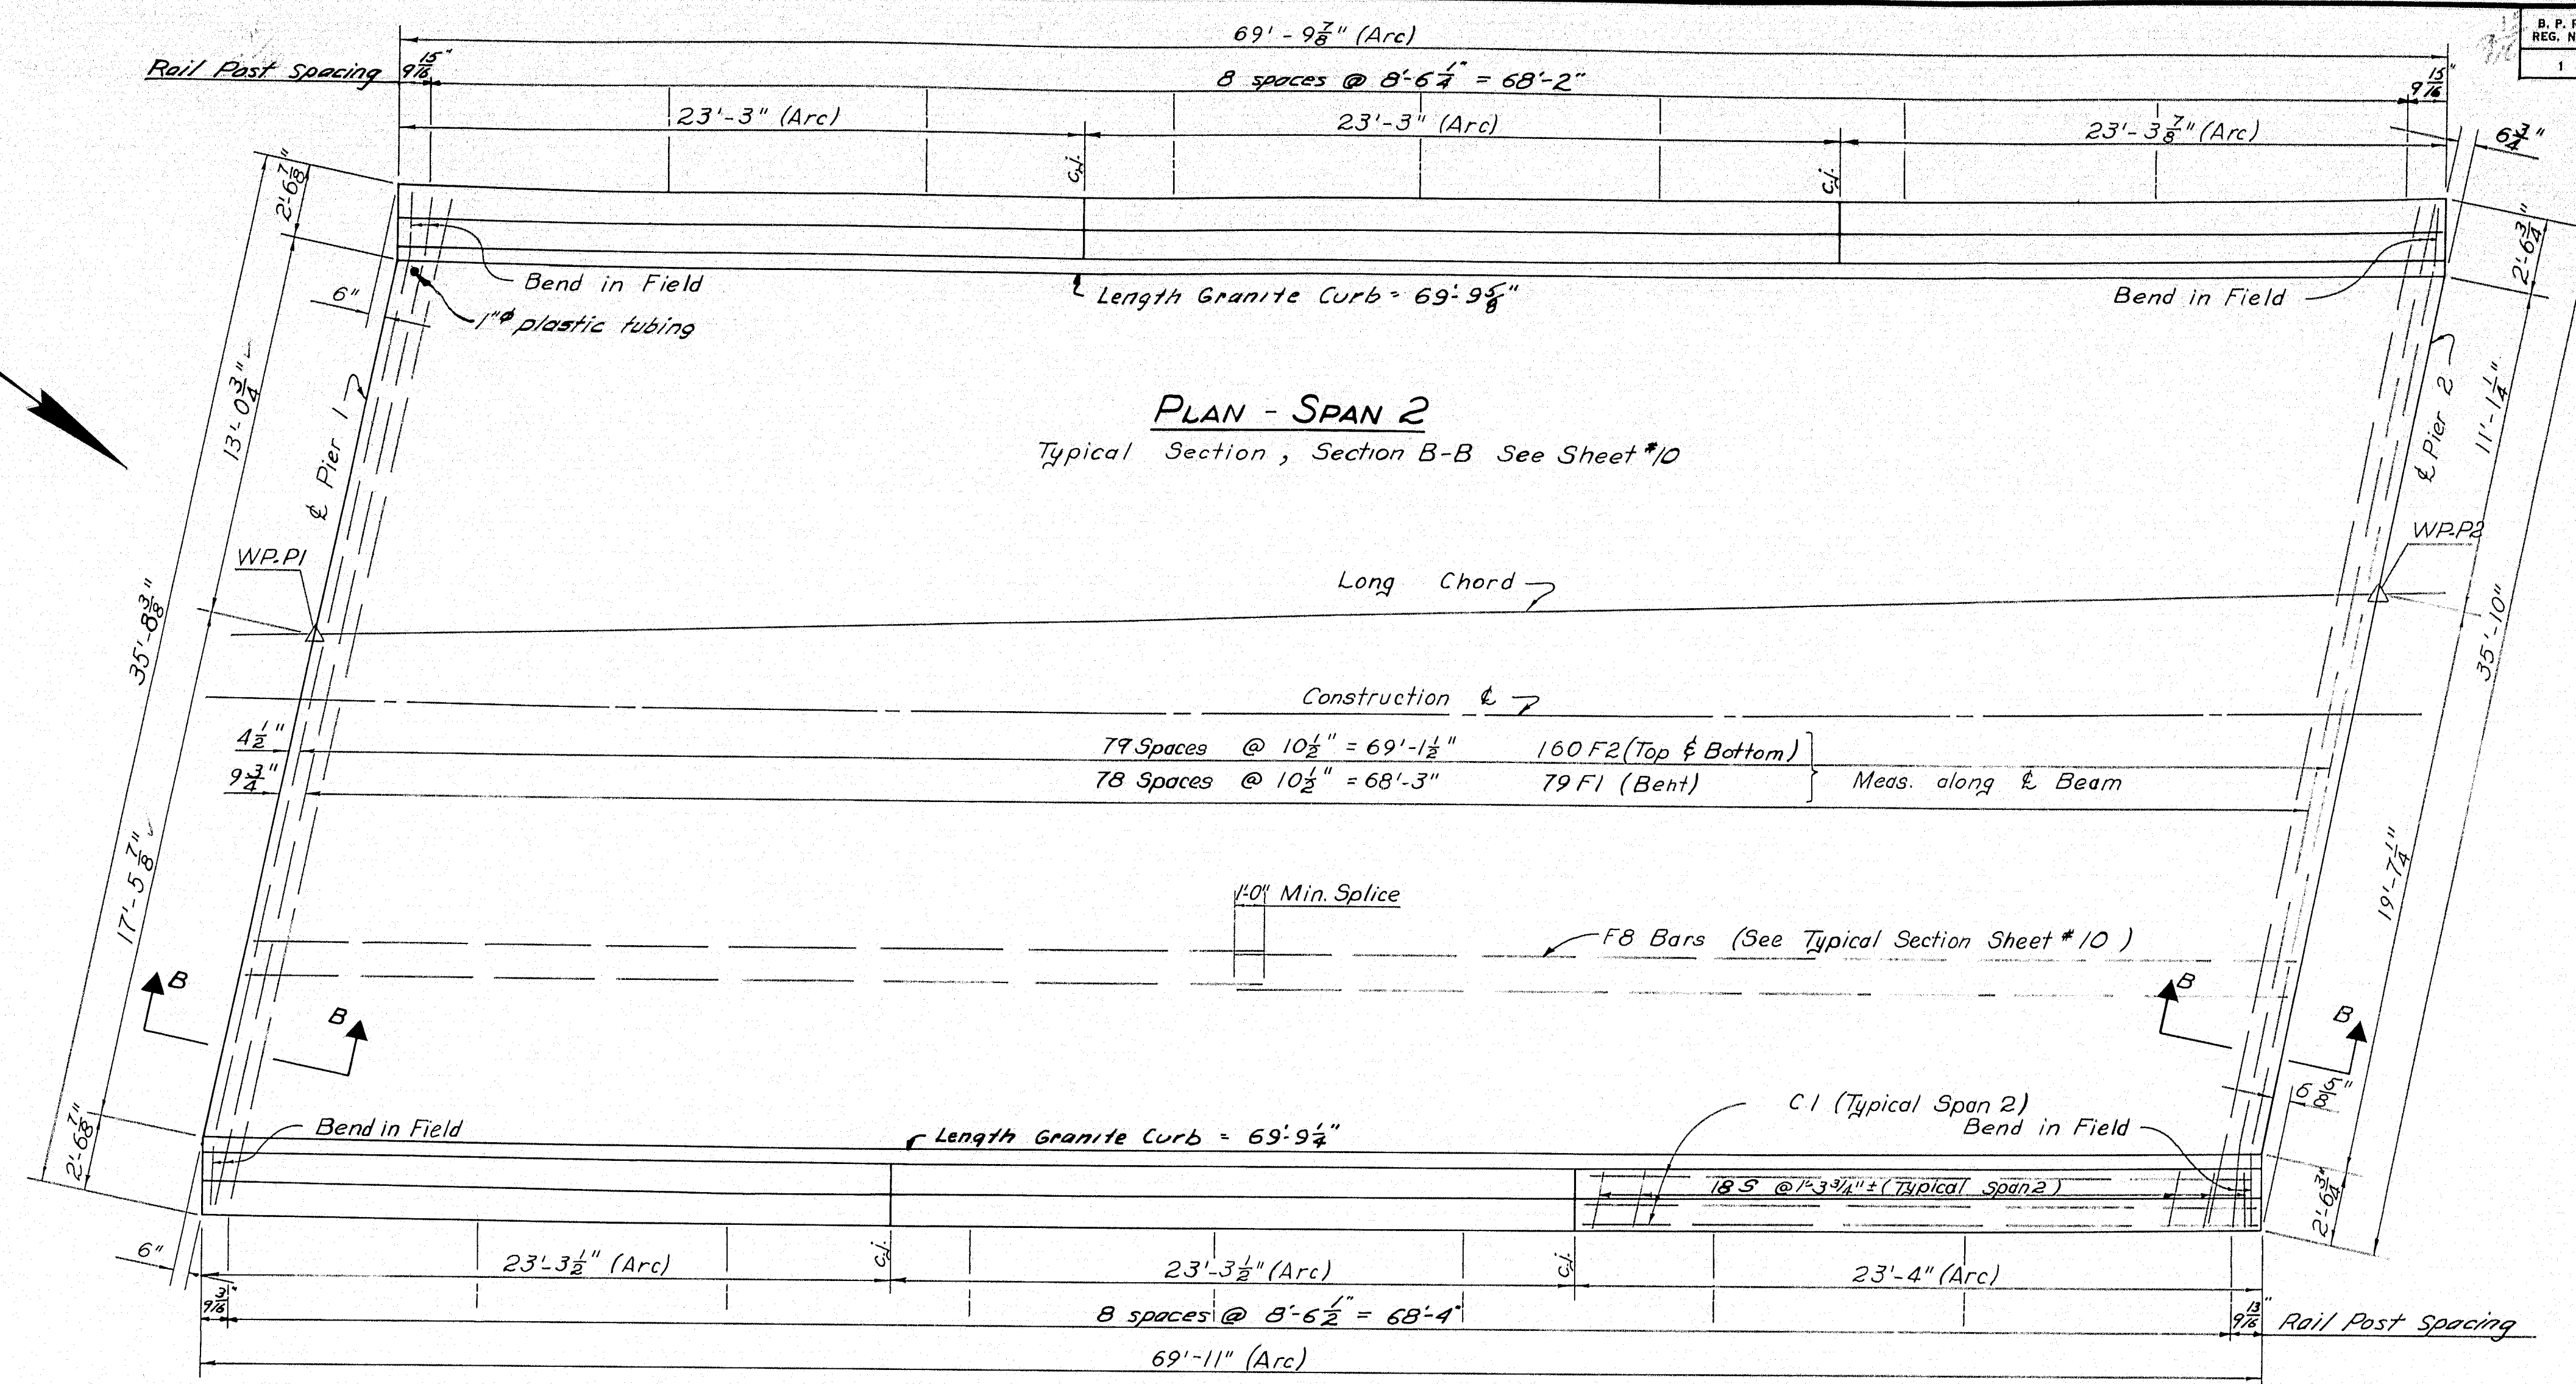 69'-9 7/8" (Arc)
B. P. R
REG. N
1
Rail Post Spacing
9 15/16"
8 spaces @ 8'-6 1/4" = 68'-2"
9 15/16"
23'-3" (Arc)
23'-3" (Arc)
23'-3 7/8" (Arc)
6 3/4"
c.j.
c.j.
2'-6 7/8"
2'-6 3/4"
Bend in Field
Bend in Field
6"
1"ø plastic tubing
Length Granite Curb = 69'-9 5/8"
13'-0 3/4"
℄ Pier 1
℄ Pier 2
11'-1 1/4"
PLAN - SPAN 2
Typical Section, Section B-B See Sheet #10
WP-P1
WP-P2
Long Chord
35'-8 3/8"
35'-10"
Construction ℄
4 1/2"
79 Spaces @ 10 1/2" = 69'-1 1/2" 160 F2 (Top & Bottom)
9 3/4"
78 Spaces @ 10 1/2" = 68'-3" 79 F1 (Bent)
Meas. along ℄ Beam
17'-5 7/8"
19'-7 1/4"
1'-0" Min. Splice
F8 Bars (See Typical Section Sheet #10)
B
B
B
B
6 5/8"
C1 (Typical Span 2)
Bend in Field
Bend in Field
Length Granite Curb = 69'-9 1/4"
2'-6 7/8"
18 S @ 1'-3 3/4" ± (Typical Span 2)
2'-6 3/4"
6"
c.j.
c.j.
23'-3 1/2" (Arc)
23'-3 1/2" (Arc)
23'-4" (Arc)
9 3/16"
8 spaces @ 8'-6 1/2" = 68'-4"
9 13/16"
Rail Post Spacing
69'-11" (Arc)